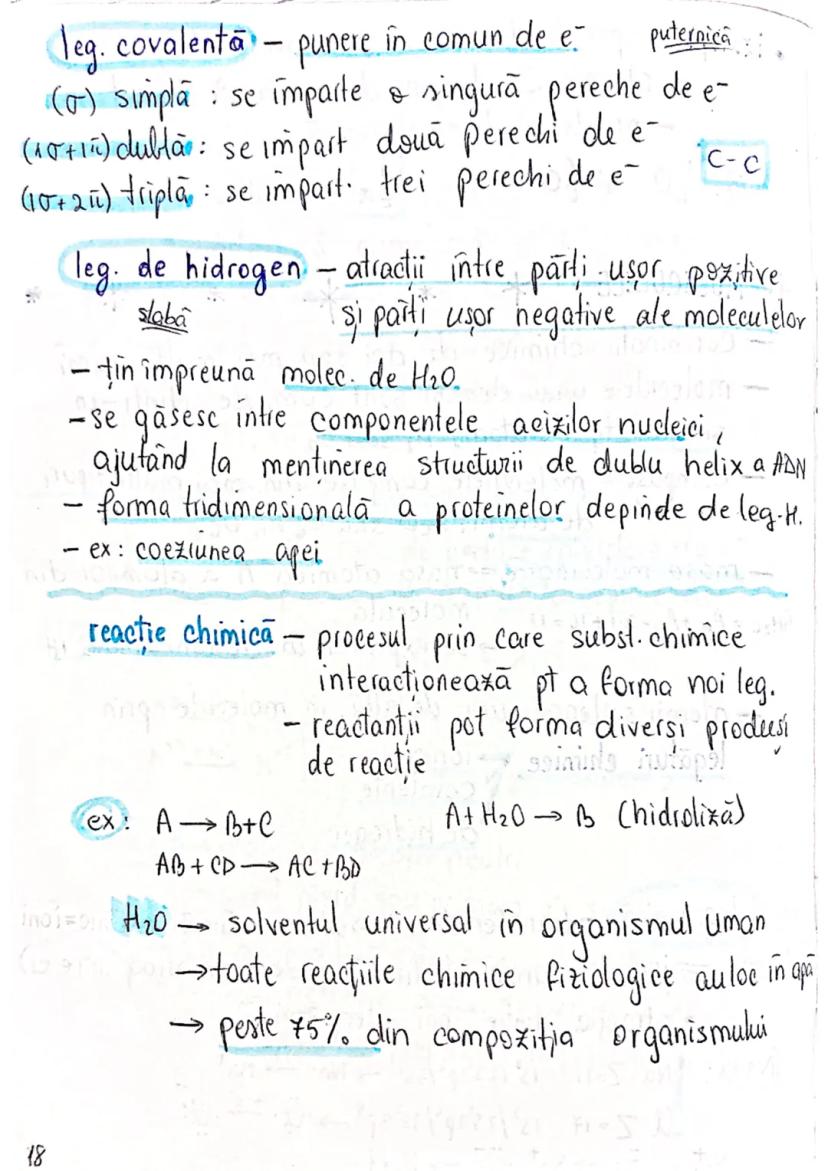 leg. covalentă – punere în comun de e⁻ puternică
(σ) simplă : se împarte o singură pereche de e⁻
(1σ+1π) dublă : se împart două perechi de e⁻
C-C
(1σ+2π) triplă : se împart. trei perechi de e⁻
leg. de hidrogen – atracții între părți ușor pozitive
slabă și părți ușor negative ale moleculelor
– țin împreună molec. de H₂O
– se găsesc între componentele acizilor nucleici,
ajutând la mentinerea structurii de dublu helix a ADN
– forma tridimensională a proteinelor depinde de leg. H.
– ex : coeziunea apei
reacție chimică – procesul prin care subst. chimice
interacționează pt a forma noi leg.
– reactanții pot forma diverși produși
de reacție
ex : A → B+C A + H₂O → B (hidroliză)
AB + CD → AC + BD
H₂O → solventul universal în organismul uman
→ toate reacțiile chimice fiziologice au loc în apă
→ peste 75% din compoziția organismului
18